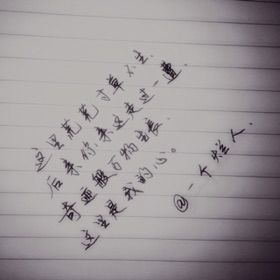 这里荒芜寸草不生.
后来你来这走过一遭.
奇迹般万物生长.
这里是我的心。
@一个烂人.